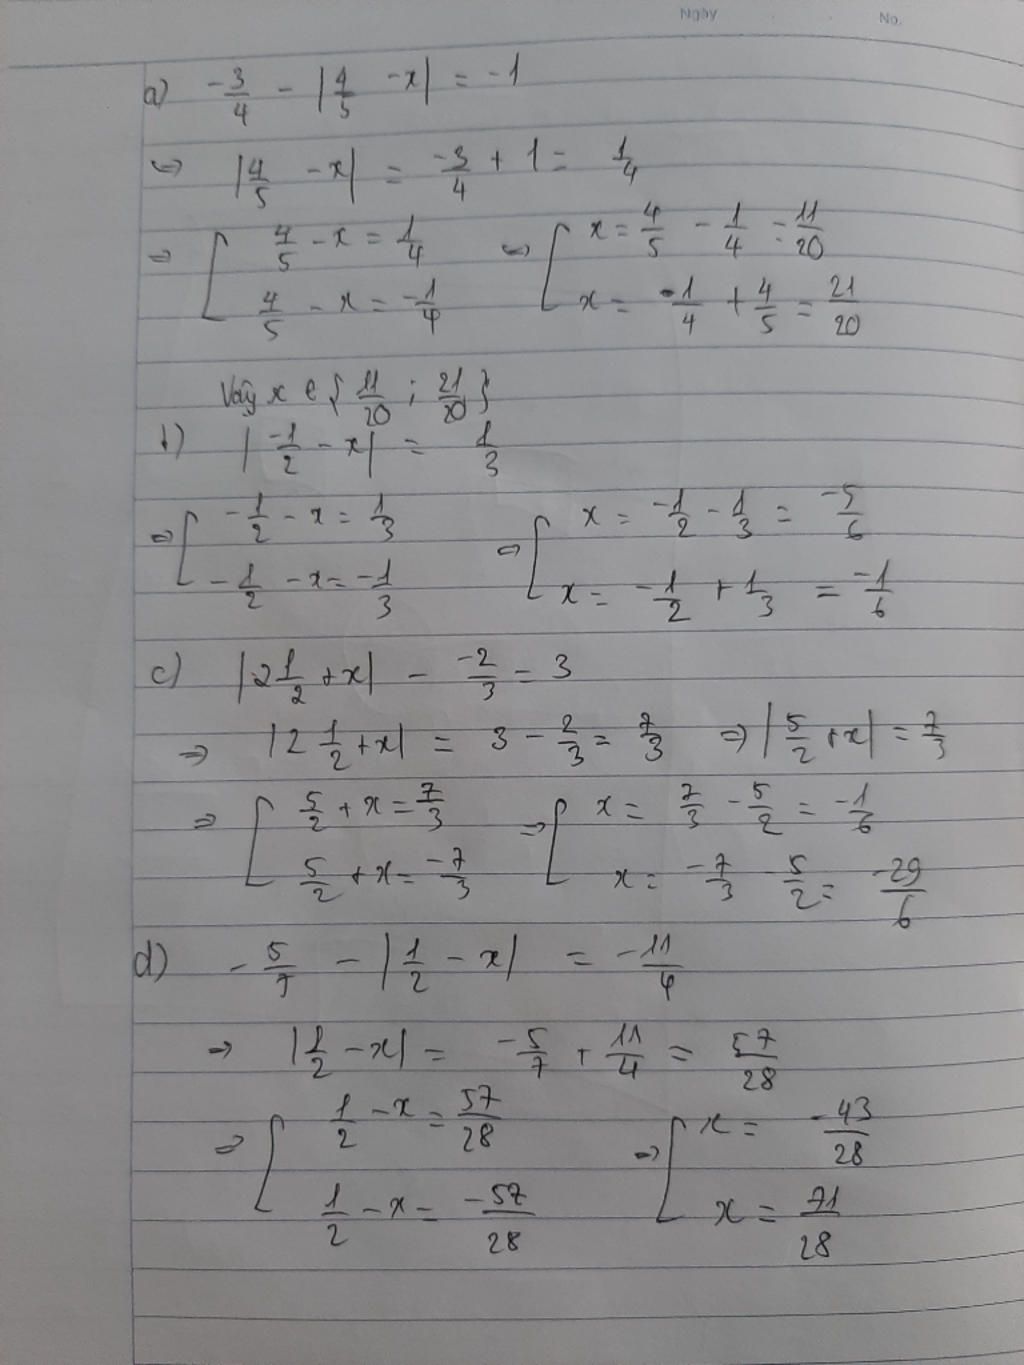 Ngày No.
a) -3/4 - |4/5 - x| = -1
⇔ |4/5 - x| = -3/4 + 1 = 1/4
⇒ [ 4/5 - x = 1/4 ⇔ [ x = 4/5 - 1/4 = 11/20
4/5 - x = -1/4 x = -1/4 + 4/5 = 21/20
Vậy x ∈ { 11/20 ; 21/20 }
b) |-1/2 - x| = 1/3
⇒ [ -1/2 - x = 1/3 ⇒ [ x = -1/2 - 1/3 = -5/6
-1/2 - x = -1/3 x = -1/2 + 1/3 = -1/6
c) |2 1/2 + x| - -2/3 = 3
⇒ |2 1/2 + x| = 3 - 2/3 = 7/3 ⇒ |5/2 + x| = 7/3
⇒ [ 5/2 + x = 7/3 ⇒ [ x = 7/3 - 5/2 = -1/6
5/2 + x = -7/3 x = -7/3 - 5/2 = -29/6
d) -5/7 - |1/2 - x| = -11/4
⇒ |1/2 - x| = -5/7 + 11/4 = 57/28
⇒ [ 1/2 - x = 57/28 ⇒ [ x = -43/28
1/2 - x = -57/28 x = 71/28